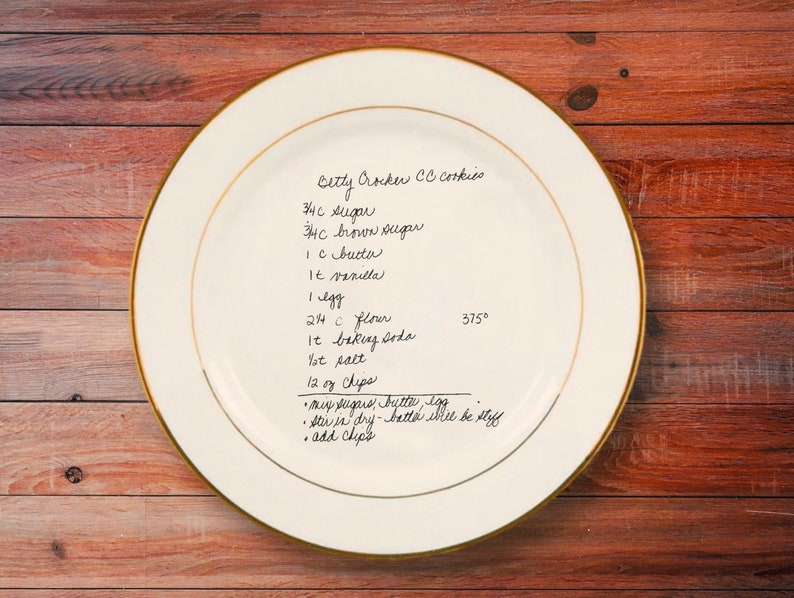 Betty Crocker CC cookies
3/4 c sugar
3/4 c brown sugar
1 c butter
1t vanilla
1 egg
2 1/4 c flour 375°
1t baking soda
1/2t salt
12 oz chips
• mix sugars, butter, egg
• stir in dry - batter will be stiff
• add chips